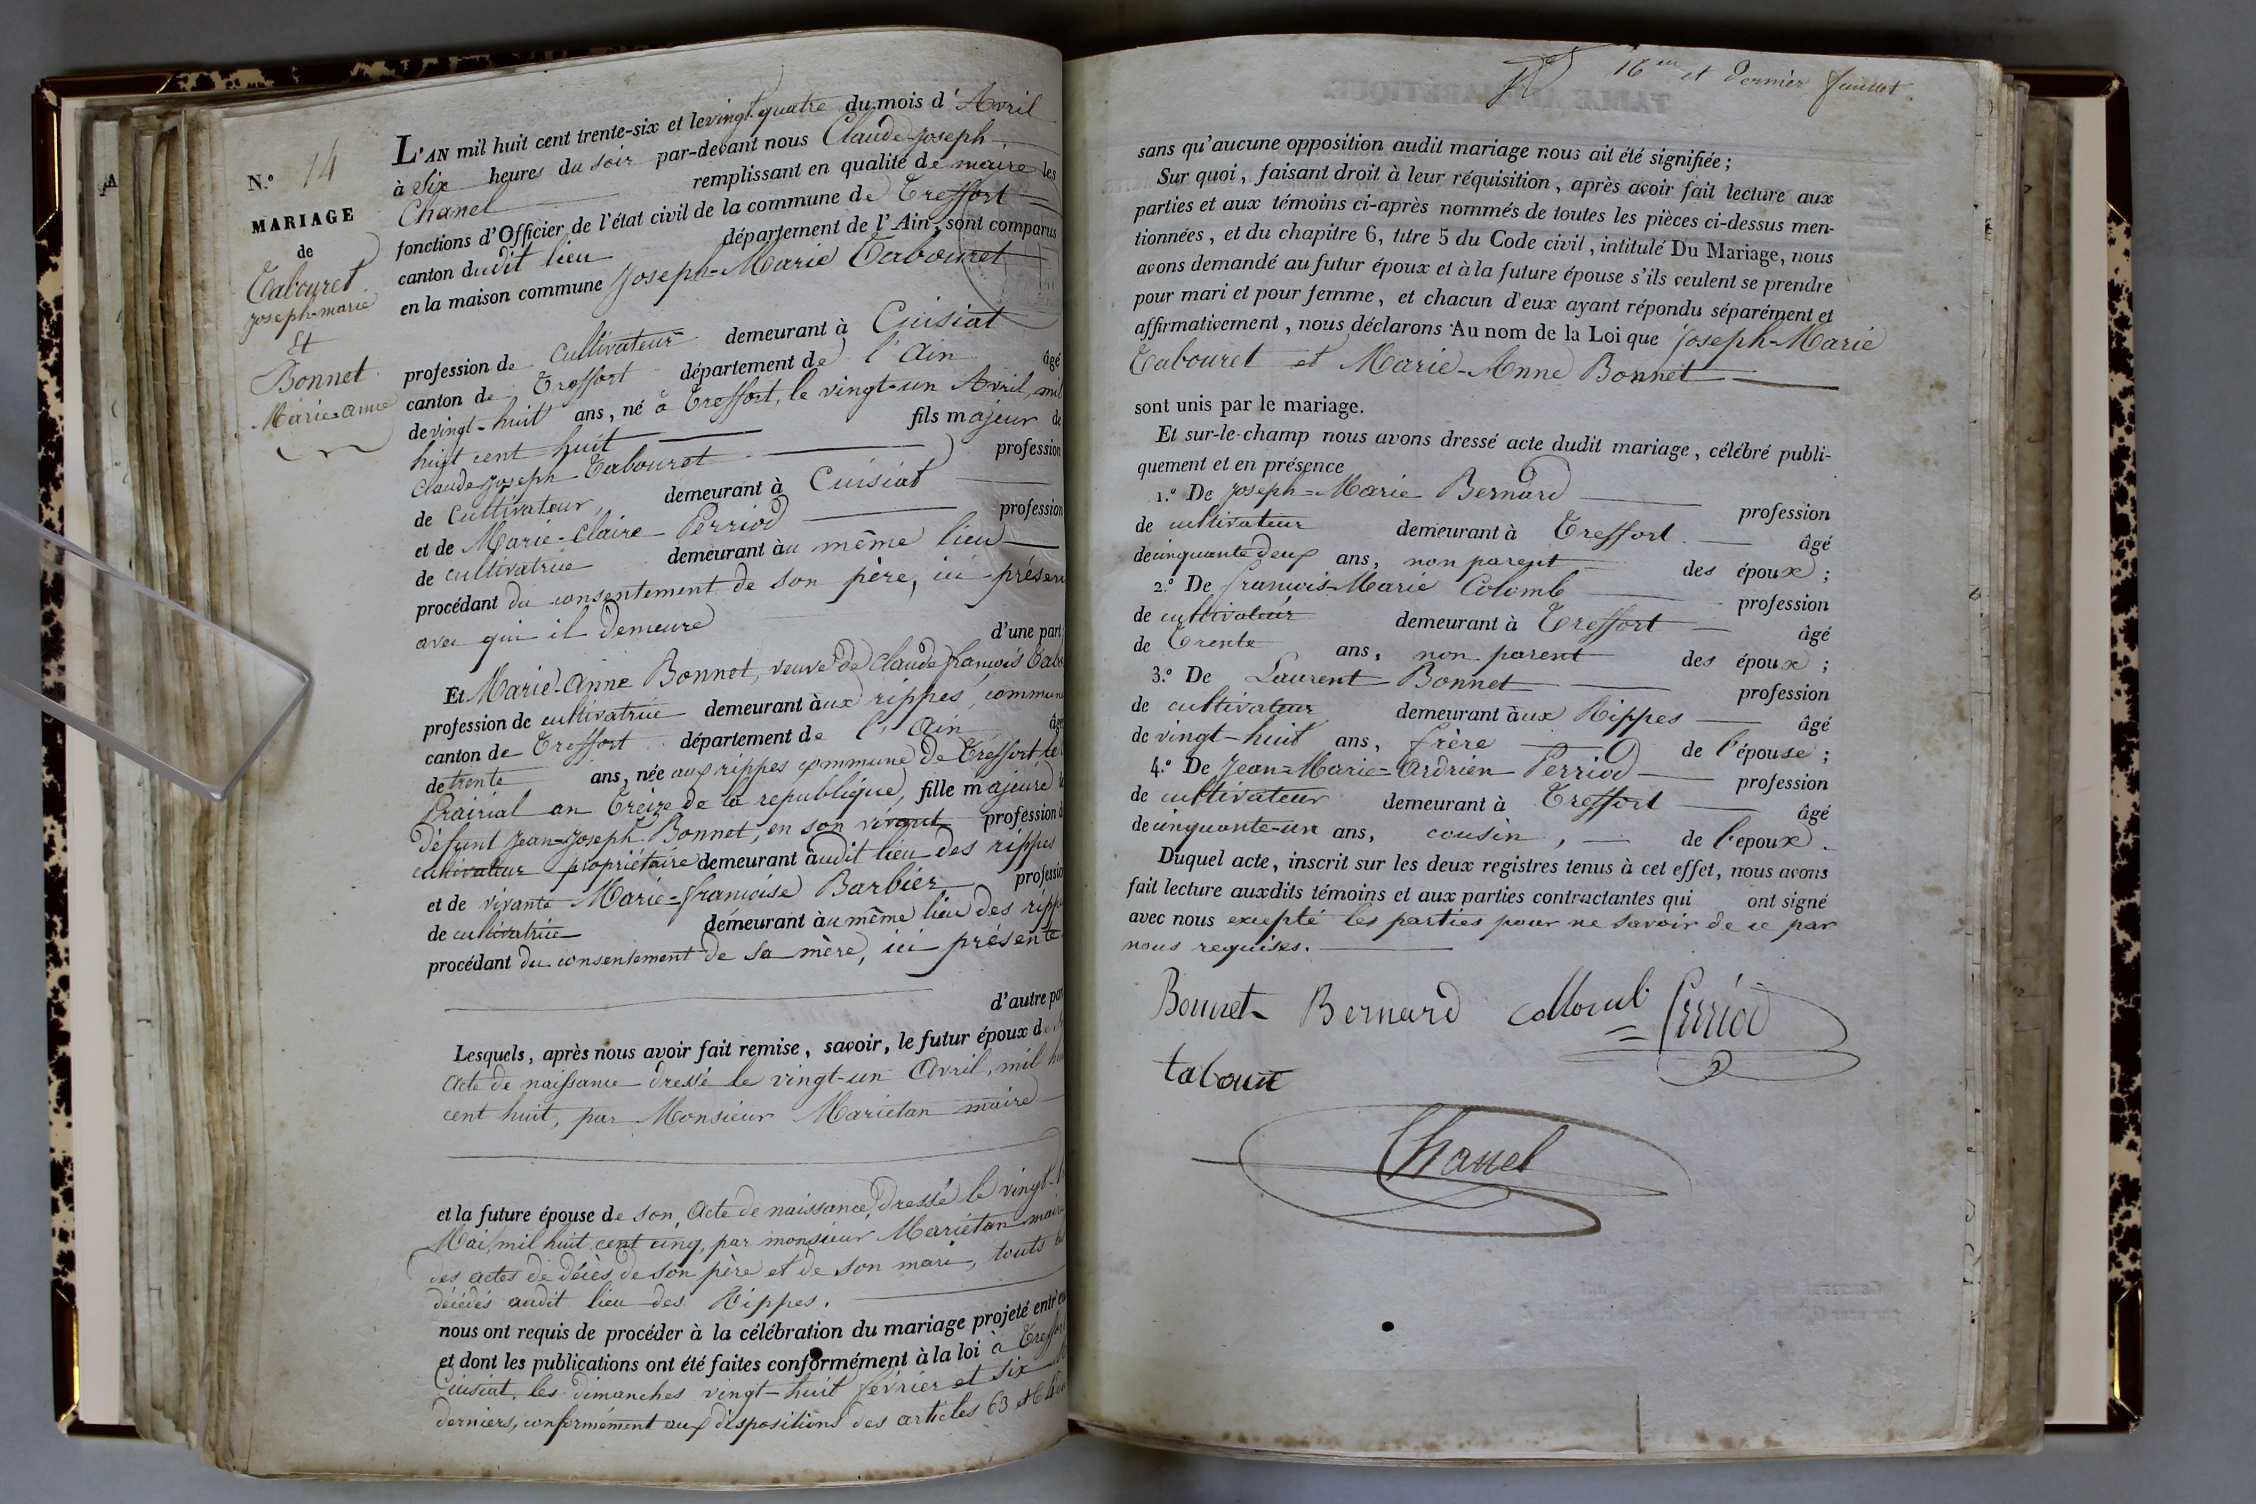 N.° 14
MARIAGE
de
Tabouret
Joseph-marie
Et
Bonnet
Marie-anne
L'AN mil huit cent trente-six et le vingt-quatre du mois d'Avril
à Six heures du soir par-devant nous Claude-Joseph
Chanel remplissant en qualité de maire les
fonctions d'Officier de l'état civil de la commune de Treffort
canton dudit lieu département de l'Ain, sont comparus
en la maison commune Joseph-Marie Tabouret
profession de cultivateur demeurant à Cuisiat
canton de Treffort département de l'Ain âgé
de vingt-huit ans, né à Treffort, le vingt-un Avril, mil
huit cent huit fils majeur de
Claude Joseph Tabouret profession
de Cultivateur, demeurant à Cuisiat
et de Marie-Claire Perriod profession
de cultivatrice demeurant au même lieu
procédant du consentement de son père, ici présent
avec qui il demeure d'une part
Et Marie-Anne Bonnet, veuve de Claude françois
profession de cultivatrice demeurant aux rippes, commune
canton de Treffort département de l'Ain âgé
de trente ans, née aux rippes commune de Treffort le
Prairial an Treize de la republique, fille majeure
défunt Jean-Joseph Bonnet, en son vivant profession d
cultivateur propriétaire demeurant audit lieu des rippes
et de vivante Marie-françoise Barbier professio
de cultivatrice demeurant au même lieu des ripp
procédant du consentement de sa mère, ici présente
d'autre par
Lesquels, après nous avoir fait remise, savoir, le futur époux de
acte de naissance dressé le vingt-un Avril, mil hu
cent huit, par Monsieur Marietan maire
et la future épouse de son Acte de naissance, dressé le vingt-
Mai, mil huit cent cinq, par monsieur Marietan maire
des actes de décès de son père et de son mari, touts
décédés audit lieu des Rippes.
nous ont requis de procéder à la célébration du mariage projeté entr'eu
et dont les publications ont été faites conformément à la loi à Treffort
Cuisiat, les dimanches vingt-huit février et six
derniers, conformément aux dispositions des articles 63 et
16me et dernier feuillet
sans qu'aucune opposition audit mariage nous ait été signifiée;
Sur quoi, faisant droit à leur réquisition, après avoir fait lecture aux
parties et aux témoins ci-après nommés de toutes les pièces ci-dessus men-
tionnées, et du chapitre 6, titre 5 du Code civil, intitulé Du Mariage, nous
avons demandé au futur époux et à la future épouse s'ils veulent se prendre
pour mari et pour femme, et chacun d'eux ayant répondu séparément et
affirmativement, nous déclarons Au nom de la Loi que Joseph-Marie
Tabouret et Marie-Anne Bonnet
sont unis par le mariage.
Et sur-le-champ nous avons dressé acte dudit mariage, célébré publi-
quement et en présence
1.° De Joseph-Marie Bernard profession
de cultivateur demeurant à Treffort âgé
de cinquante deux ans, non parent des époux;
2.° De françois-Marie Colomb profession
de cultivateur demeurant à Treffort âgé
de Trente ans, non parent des époux;
3.° De Laurent Bonnet profession
de cultivateur demeurant aux Rippes âgé
de vingt-huit ans, frère de l'épouse;
4.° De Jean-Marie-Ardrien Perriod profession
de cultivateur demeurant à Treffort âgé
de cinquante-un ans, cousin, de l'epoux.
Duquel acte, inscrit sur les deux registres tenus à cet effet, nous avons
fait lecture auxdits témoins et aux parties contractantes qui ont signé
avec nous excepté les parties pour ne savoir de ce par
nous requises.
Bonnet Bernard Colomb Perriod
tabouret
Chanel